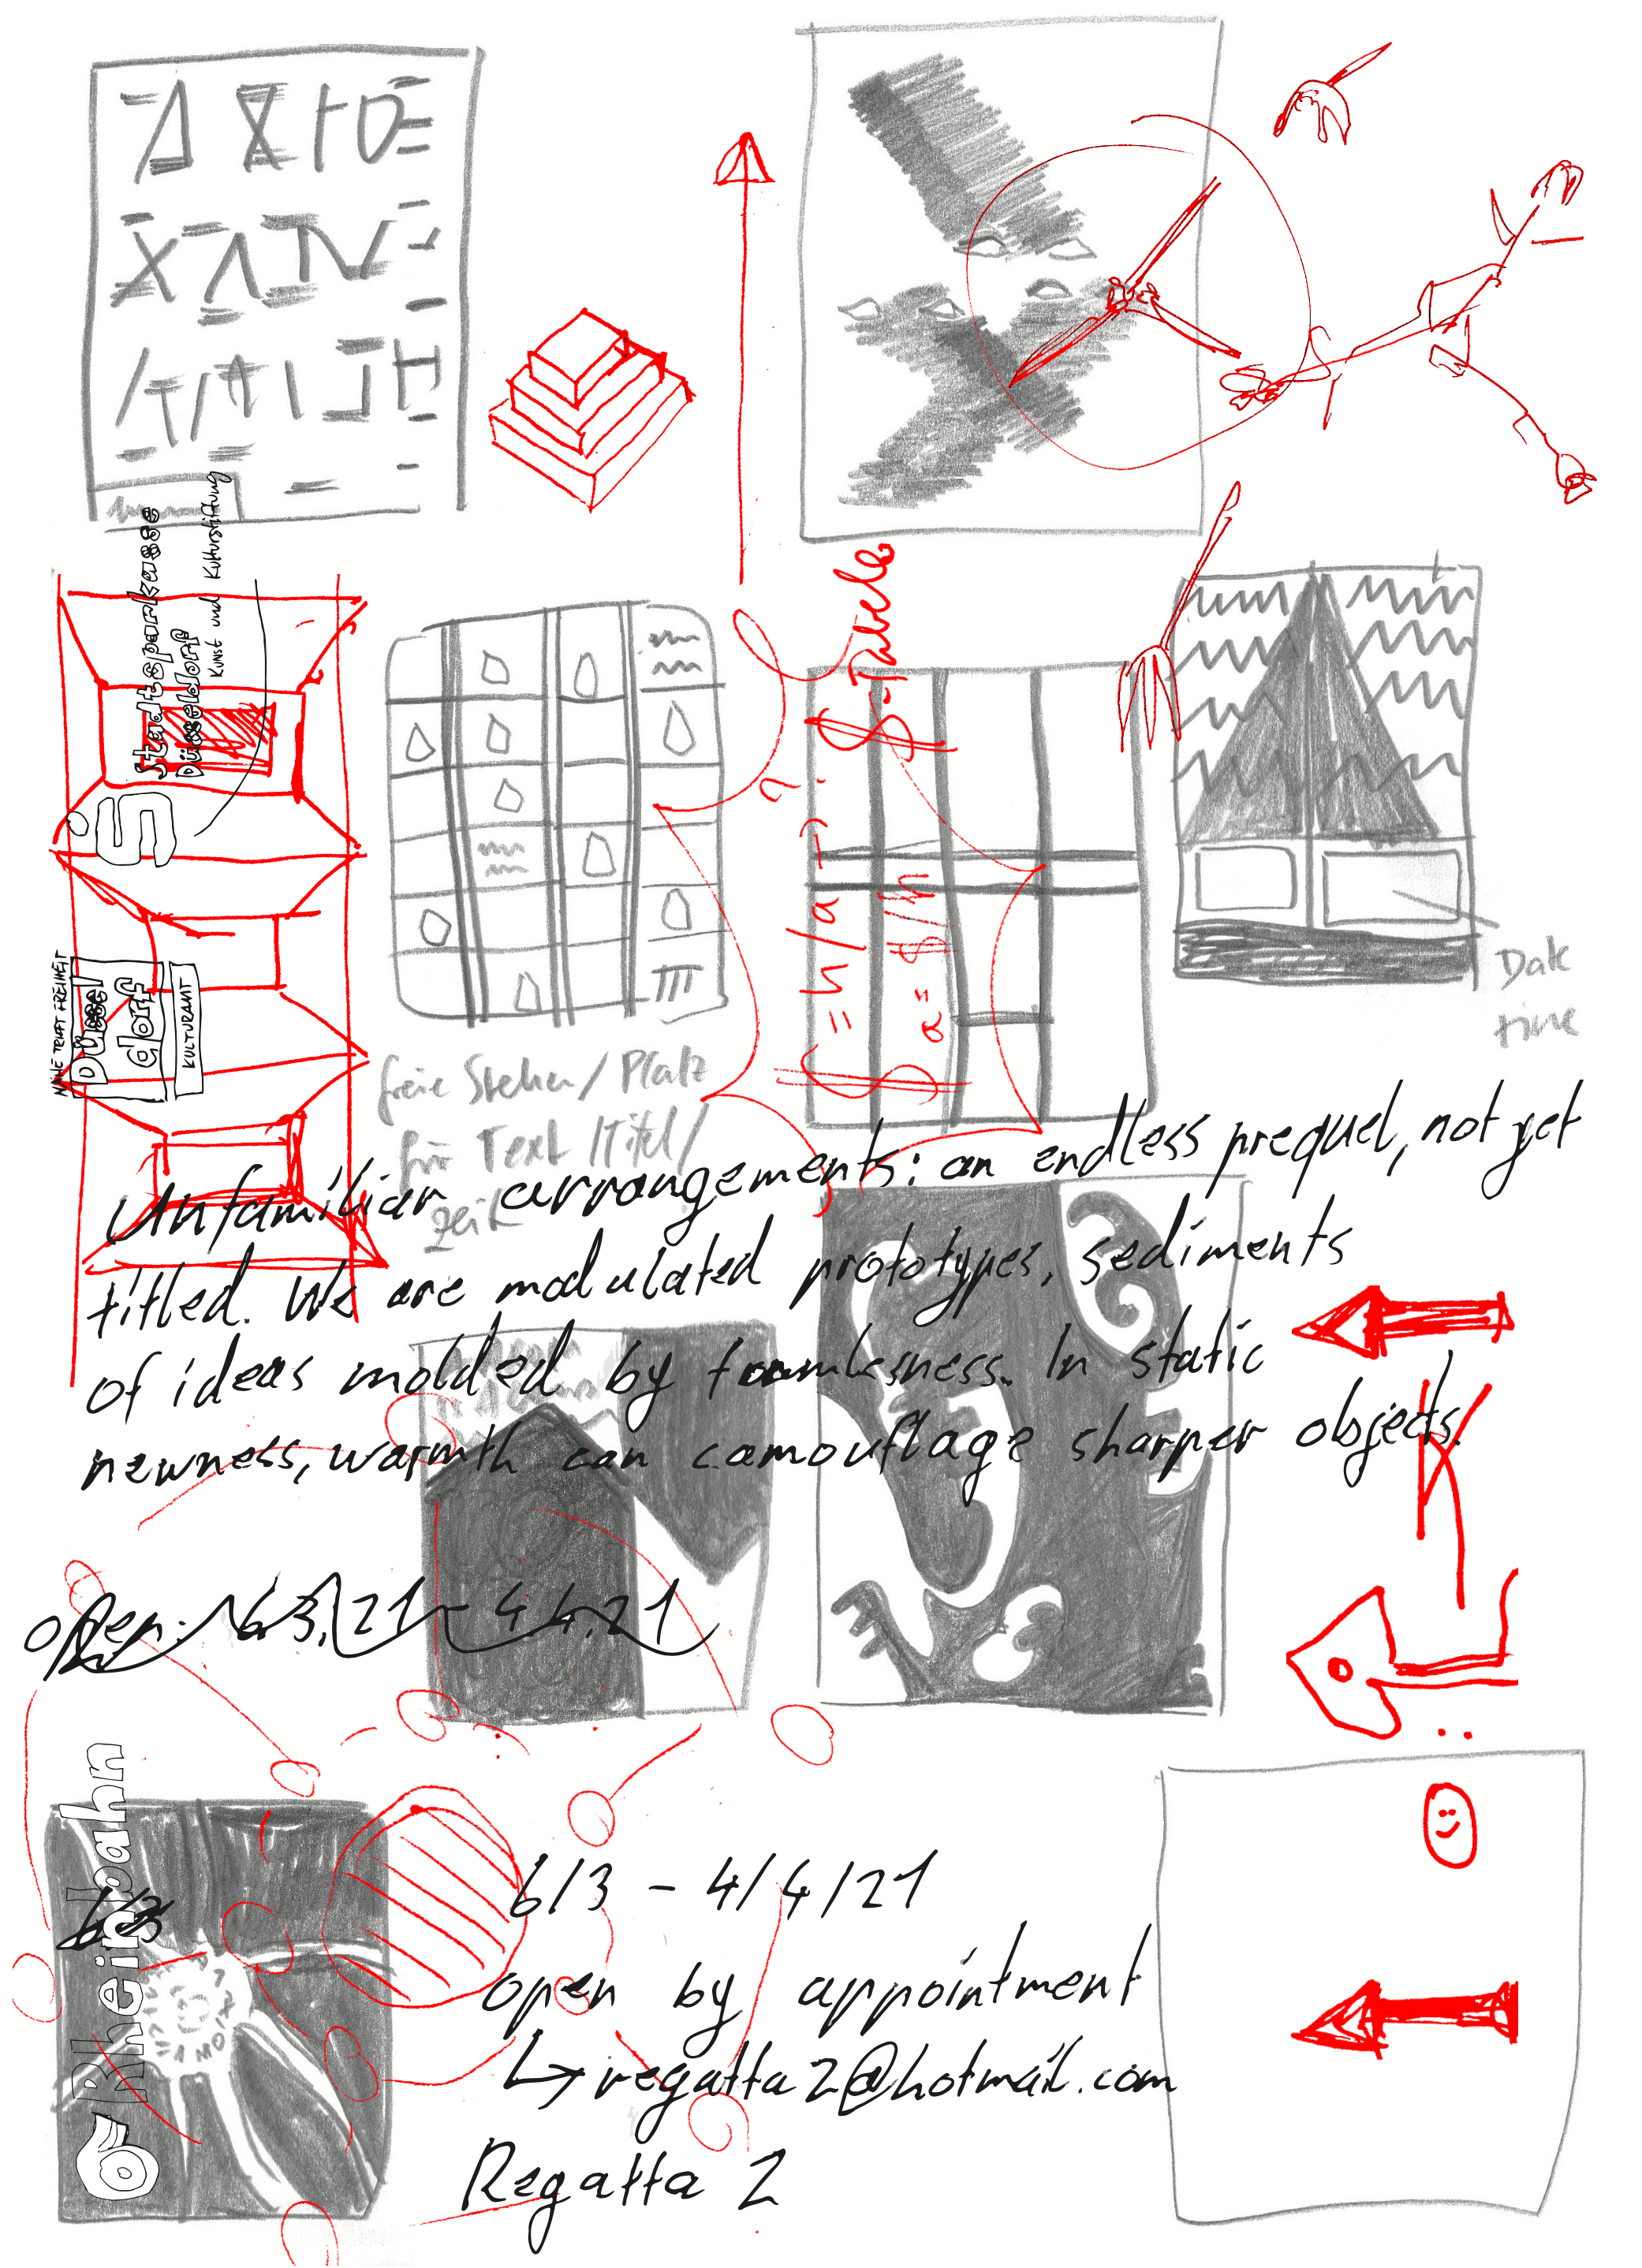 Stadtsparkasse
Düsseldorf
Kunst und Kulturstiftung
NÄHE TRIFFT FREIHEIT
Düssel
dorf
KULTURAMT
$-Tabelle
= h/a →
a = $/h
Date
time
freie Stellen / Platz
für Text / Titel /
Zeit
Unfamiliar arrangements: an endless prequel, not yet
titled. We are modulated prototypes, sediments
of ideas molded by formlesness. In static
newness, warmth can camouflage sharper objects.
open: 6.3.21 - 4.4.21
Rheinbahn
6/3
6/3 - 4/4/21
open by appointment
↳ regatta2@hotmail.com
Regatta 2